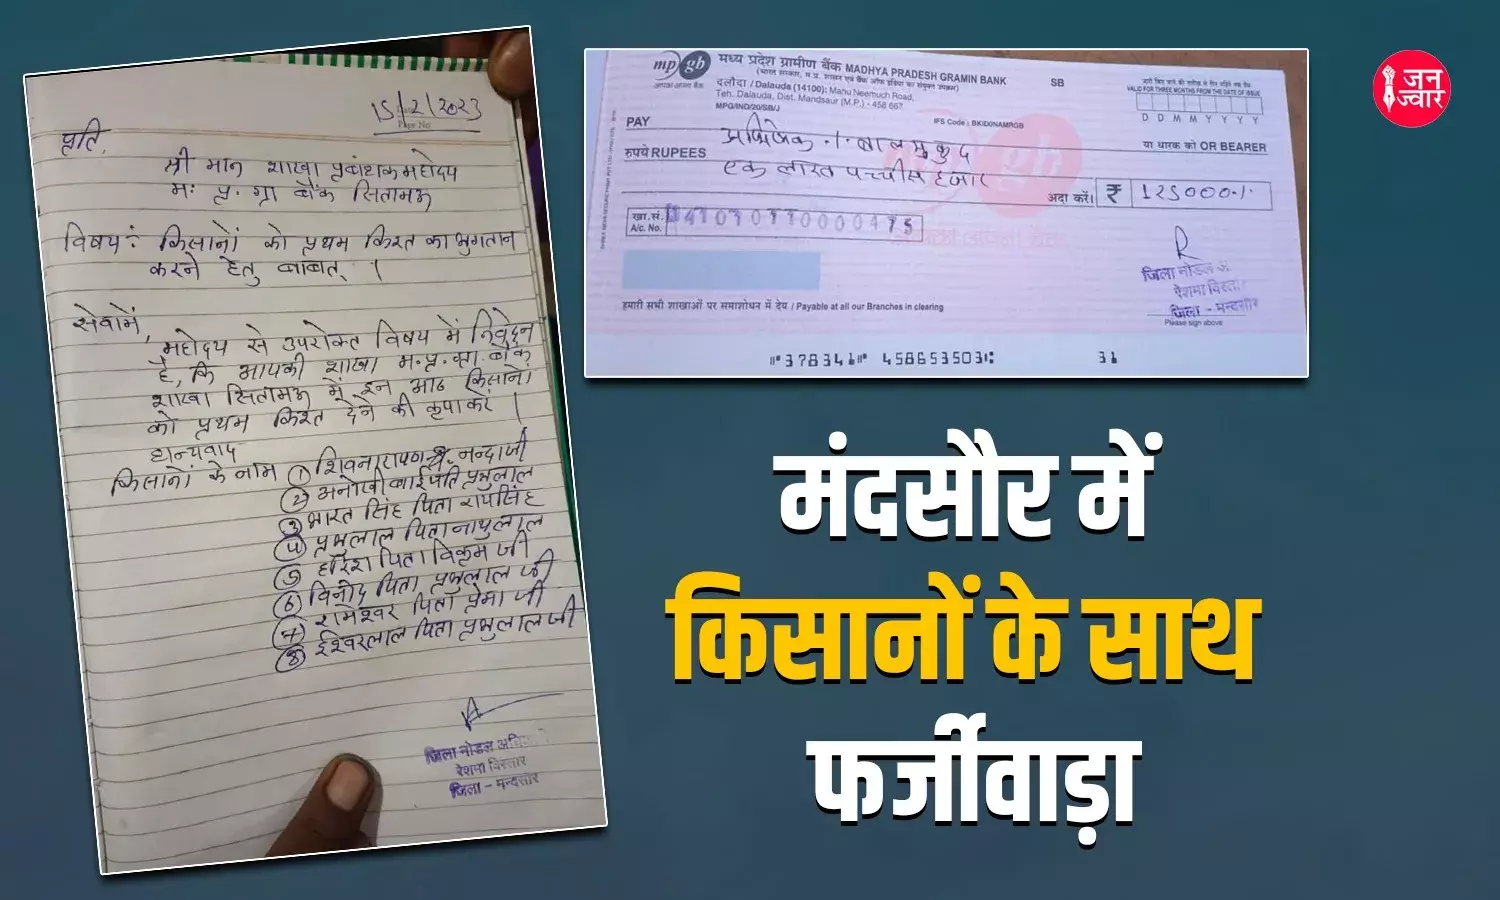 15/2/2023
Page No
प्रति,
श्री मान शाखा प्रबंधक महोदय
मः प्र. ग्रा बैंक सितामऊ
विषय: किसानों को प्रथम किश्त का भुगतान
करने हेतु बाबत् ।
सेवामें,
महोदय से उपरोक्त विषय में निवेदन
है, कि आपकी शाखा म.प्र.ग्रा. बैंक
शाखा सितामऊ में इन आठ किसानों
को प्रथम किश्त देने की कृपा करें ।
धन्यवाद
किसानों के नाम ① शिवनारायण नन्दाजी
② अनोखीबाई पति प्रभुलाल
③ भारत सिंह पिता रायसिंह
④ प्रभुलाल पिता नाथुलाल
⑤ हरिश पिता विक्रम जी
⑥ विनोद पिता प्रभुलाल जी
⑦ रामेश्वर पिता प्रेमा जी
⑧ ईश्वरलाल पिता प्रभुलाल जी
जिला नोडल
रेशम विस्तार
जिला - मन्दसौर
mp gb
मध्य प्रदेश ग्रामीण बैंक MADHYA PRADESH GRAMIN BANK SB
दलौदा / Dalauda (14100): Mahu Neemuch Road,
Teh. Dalauda, Dist. Mandsaur (M.P.) - 458 667
MPG/IND/20/SB/J
IFS Code : BKID0NAMRGB
VALID FOR THREE MONTHS FROM THE DATE OF ISSUE
D D M M Y Y Y Y
PAY अभिषेक बालमुकुंद या धारक को OR BEARER
रुपये RUPEES एक लाख पच्चीस हजार
अदा करें। ₹ 125000/-
खा.सं.
A/c. No.
जिला नोडल अ.
रेशम विस्तार
जिला - मन्दसौर
Please sign above
हमारी सभी शाखाओं पर समाशोधन में देय / Payable at all our Branches in clearing
⑈378341⑈ 458653503⑆ 31
जन
ज्वार
मंदसौर में
किसानों के साथ
फर्जीवाड़ा